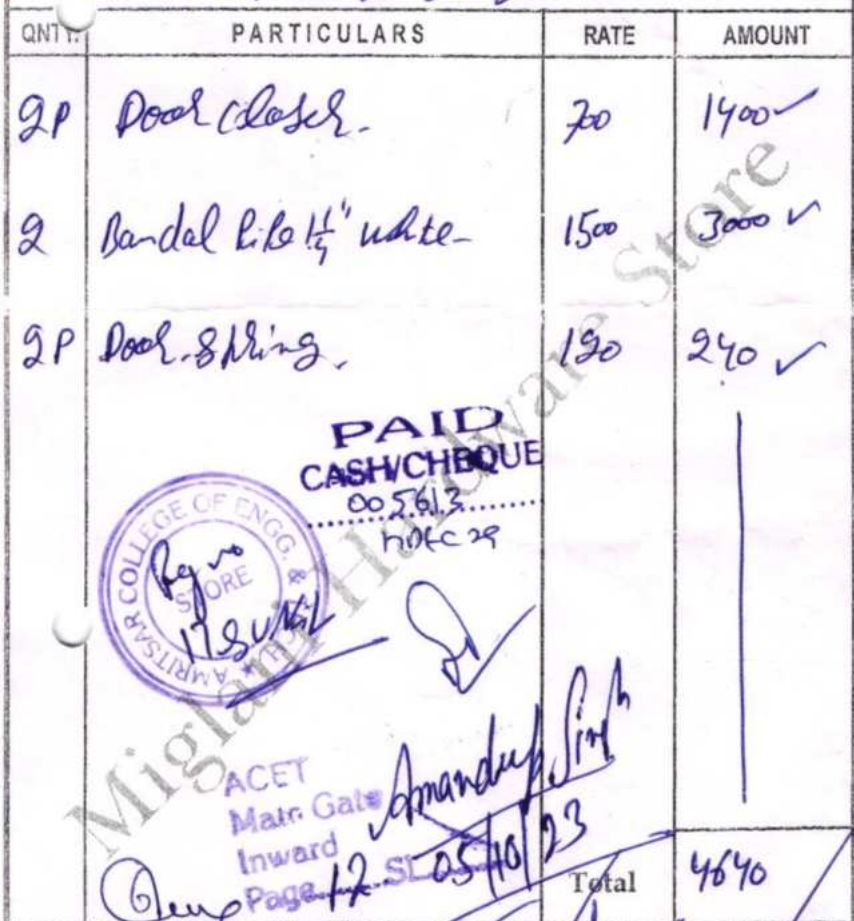 QNTY. PARTICULARS RATE AMOUNT
2P Door closer. 700 1400 ✓
2 Bandal Pipe 1 1/4" white 1500 3000 ✓
2P Door. Spring. 120 240 ✓
PAID
CASH/CHEQUE
005613
HDFC
AMRITSAR COLLEGE OF ENGG. &
STORE
Reg no
17 SUNIL
Miglani Hardware Store
ACET
Main Gate
Inward
Page 12 SL
Amandeep Singh
05/10/23
Total 4640